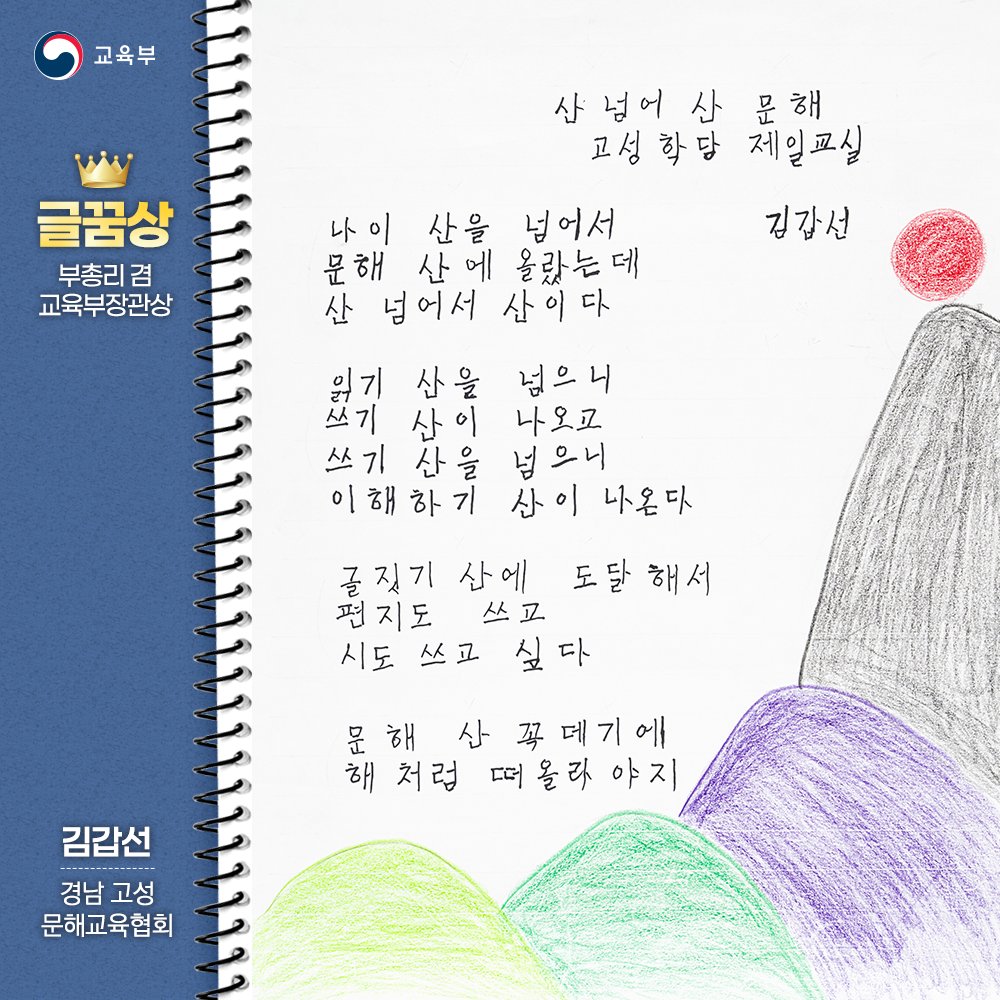 교육부
글꿈상
부총리 겸
교육부장관상
산 넘어 산 문해
고성학당 제일교실
김갑선
나이 산을 넘어서
문해 산에 올랐는데
산 넘어서 산이다
읽기 산을 넘으니
쓰기 산이 나오고
쓰기 산을 넘으니
이해하기 산이 나온다
글짓기 산에 도달해서
편지도 쓰고
시도 쓰고 싶다
문해 산 꼭데기에
해처럼 떠올라야지
김갑선
경남 고성
문해교육협회